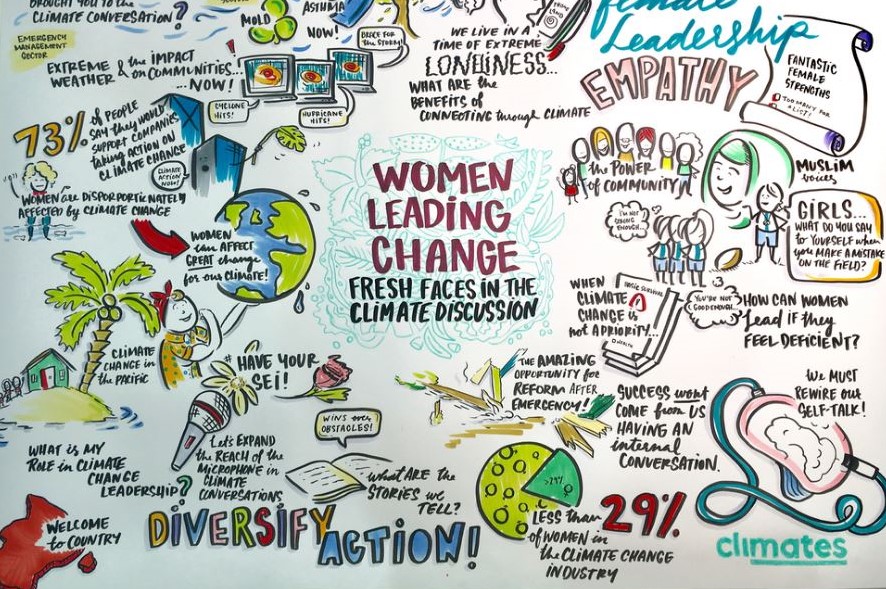 BROUGHT YOU TO THE
CLIMATE CONVERSATION?
EMERGENCY
MANAGEMENT
SECTOR
MOLD
ASTHMA
NOW!
EXTREME & the IMPACT
WEATHER on COMMUNITIES...
...NOW!
BRACE FOR
the STORM!
CYCLONE
HITS!
HURRICANE
HITS!
WE LIVE IN A
TIME OF EXTREME
LONELINESS...
WHAT ARE THE
BENEFITS OF
CONNECTING through CLIMATE
female
Leadership
EMPATHY
FANTASTIC
FEMALE
STRENGTHS
TOO MANY FOR
A LIST!
73% of PEOPLE
SAY they WOULD
SUPPORT COMPANIES
taking ACTION ON
CLIMATE CHANGE
CLIMATE
ACTION
NOW!
WOMEN are DISPORPORTIONATELY
AFFECTED by CLIMATE CHANGE
WOMEN
can AFFECT
GREAT change
for our CLIMATE!
WOMEN
LEADING
CHANGE
FRESH FACES IN THE
CLIMATE DISCUSSION
the POWER
of COMMUNITY
MUSLIM
voices
I'M NOT
STRONG
ENOUGH...
GIRLS...
WHAT DO YOU SAY
to YOURSELF when
you MAKE A MISTAKE
ON THE FIELD?
WHEN
CLIMATE
CHANGE is
not A PRIORITY...
BASIC SURVIVAL
HEALTH
YOU'RE NOT
GOOD ENOUGH...
HOW CAN WOMEN
lead IF they
FEEL DEFICIENT?
CLIMATE
CHANGE in
the PACIFIC
# HAVE YOUR
SEI!
THE AMAZING
OPPORTUNITY for
REFORM AFTER
EMERGENCY!
SUCCESS won't
COME from US
HAVING AN
internal
CONVERSATION.
WE MUST
REWIRE our
SELF-TALK!
WINS over
OBSTACLES!
Let's EXPAND
the REACH of the
MICROPHONE in
CLIMATE
CONVERSATIONS
WHAT IS MY
ROLE in CLIMATE
CHANGE
LEADERSHIP?
What ARE THE
STORIES we
TELL?
WELCOME
to COUNTRY
DIVERSIFY
ACTION!
>29%
LESS than 29%
of WOMEN in
the CLIMATE CHANGE
INDUSTRY
climates